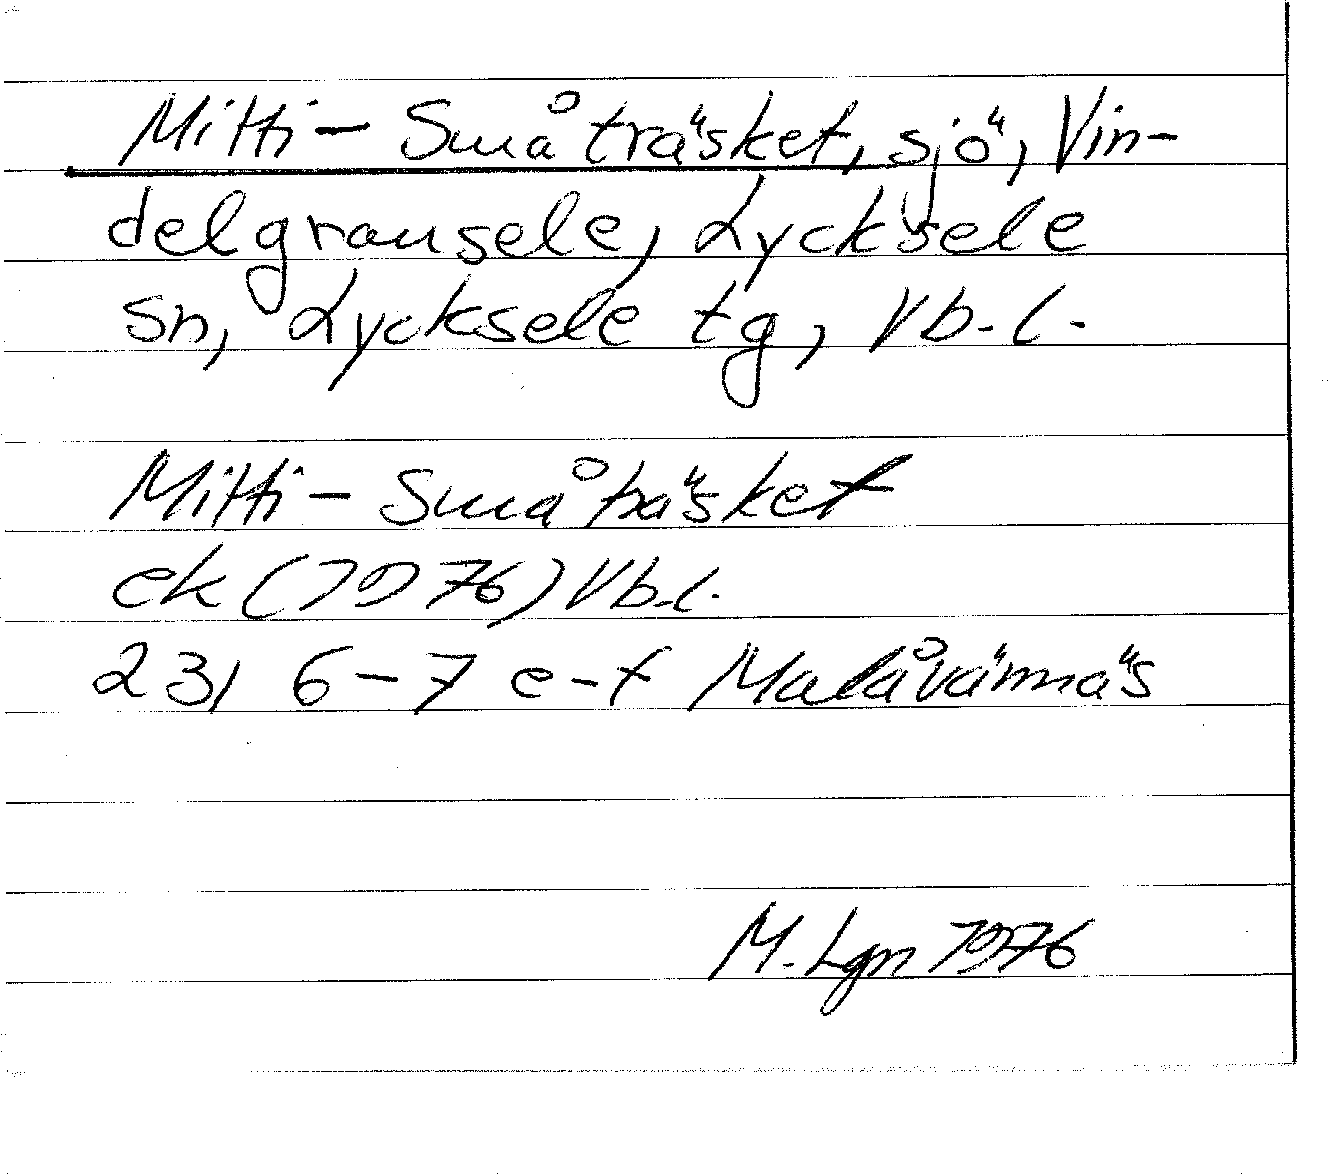 Mitti- Småträsket, sjö, Vin-
delgransele, Lycksele
sn, Lycksele tg, Vb. l.
Mitti- Småträsket
ek (1976) Vb. l.
23I 6-7 e-f Malåvännäs
M. Lgn 1976